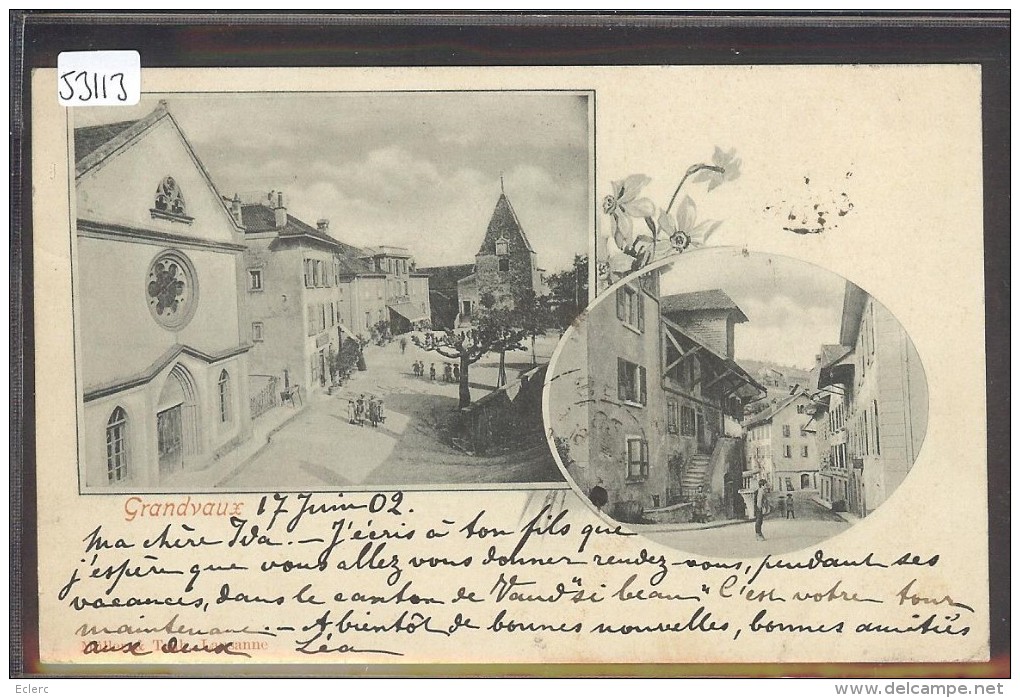 53113
Grandvaux 17 Juin 02.
Ma chère Ida. - J'écris à ton fils que
j'espère que vous allez vous donner rendez-vous, pendant ses
vacances, dans le canton de Vaud "si beau" C'est votre tour
maintenant. - A bientôt de bonnes nouvelles, bonnes amitiés
aux deux Léa
Lausanne
Eclerc
delcampe.net